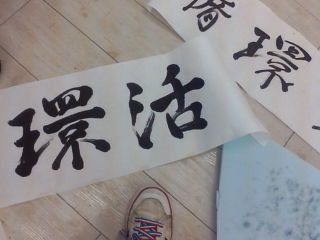 環活
環